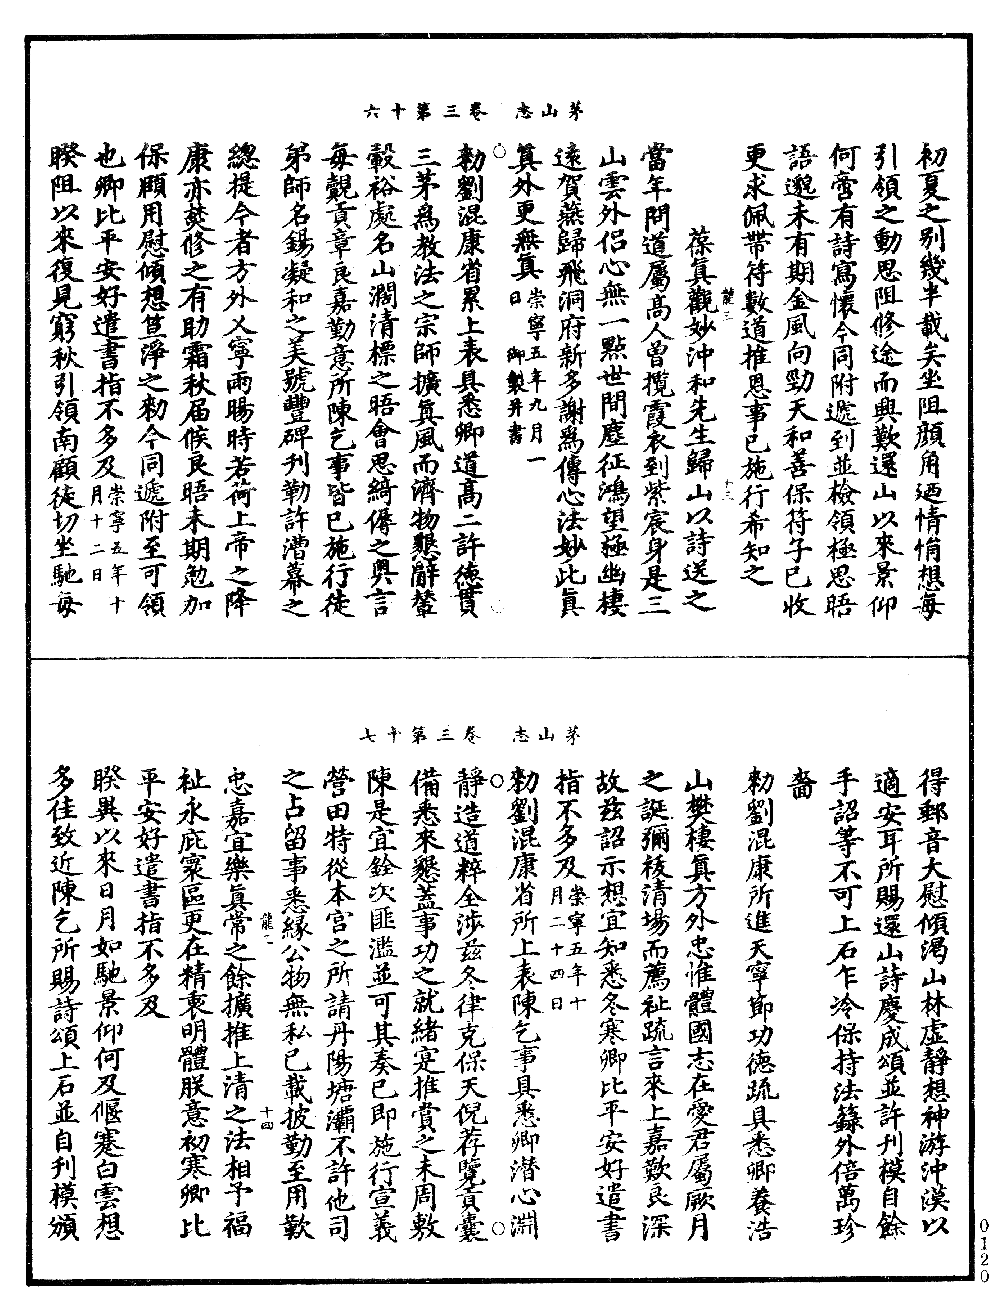 茅山志　卷三第十六
初夏之别幾半載矣坐阻顔角迺情悁想每
引領之動思阻修途而興歎還山以來景仰
何啻有詩寫懷今同附遞到並檢領極思晤
語邈未有期金風向勁天和善保符子已收
更求佩帶符數道推恩事已施行希知之
龍三　十三
葆真觀妙沖和先生歸山以詩送之
當年問道屬高人曾攬霞衣到紫宸身是三
山雲外侣心無一點世間塵征鴻望極幽棲
遠賀燕歸飛洞府新多謝爲傳心法妙此真
真外更無真崇寧五年九月一日　御製并書
○
敕劉混康省累上表具悉卿道高二許德貫
三茅爲教法之宗師擴真風而濟物懇辭輦
轂裕處名山濶清標之晤會思縞儔之輿言
每觀貢章良嘉勤意所陳乞事皆已施行徒
弟師名錫凝和之美號豐碑刊勒許漕幕之
總提今者方外乂寧雨暘時若荷上帝之降
康亦焚修之有助霜秋届候良晤未期勉加
保頤用慰傾想笪淨之敕今同遞附至可領
也卿比平安好遣書指不多及崇寧五年十月十二日
暌阻以來復見窮秋引領南顧徒切坐馳每
茅山志　卷三第十七
得郵音大慰傾渴山林虛靜想神游沖漠以
適安耳所賜還山詩慶成頌並許刊模自餘
手詔等不可上石乍冷保持法籙外倍萬珍
嗇
敕劉混康所進天寧節功德疏具悉卿養浩
山樊棲真方外忠惟體國志在愛君屬厥月
之誕彌祾清場而薦祉疏言來上嘉歎良深
故兹詔示想宜知悉冬寒卿比平安好遣書
指不多及崇寧五年十月二十四日
敕劉混康省所上表陳乞事具悉卿潛心淵
○
静造道粹全涉兹冬律克保天倪荐覽貢囊
備悉來懇蓋事功之就緒寔推賞之未周敷
陳是宜銓次匪濫並可其奏已即施行宣義
營田特從本宫之所請丹陽塘灞不許他司
之占留事悉緣公物無私已載披勤至用歎
龍二　十四
忠嘉宜樂真常之餘擴推上清之法相予福
祉永庇寰區更在精衷明體朕意初寒卿比
平安好遣書指不多及
暌異以來日月如馳景仰何及偃蹇白雲想
多佳致近陳乞所賜詩頌上石並自刊模頒
0120